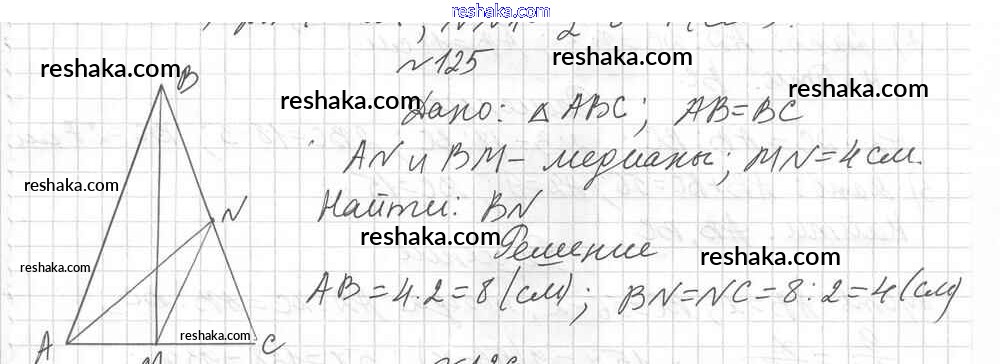 reshaka.com
№125
reshaka.com
reshaka.com
reshaka.com
reshaka.com
B
Дано: △ABC; AB=BC
AN и BM – медианы; MN=4 см.
reshaka.com
N
Найти: BN
reshaka.com
Решение
reshaka.com
reshaka.com
AB=4·2=8 (см); BN=NC=8:2=4 (см)
reshaka.com
A
C
M